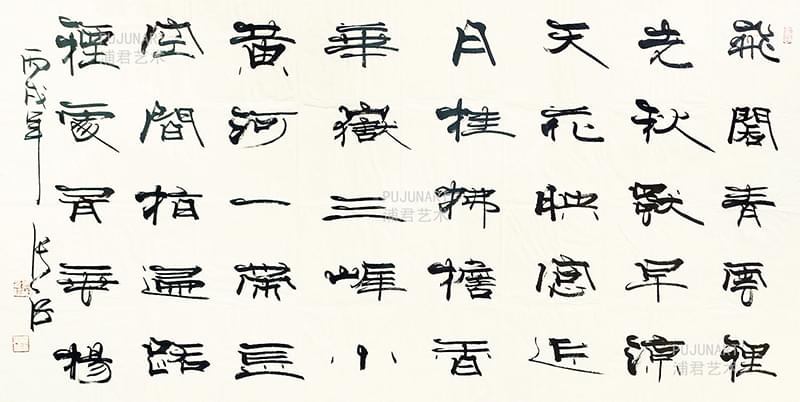 飛閣青雲裡
先秋獨早涼
天花映窓近
月桂拂檐香
華嶽三峰小
黃河一帶長
空間指路
處有垂楊
丙戌年
PUJUNART
浦君艺术
PUJUNART
浦君艺术
PUJUNART
浦君艺术